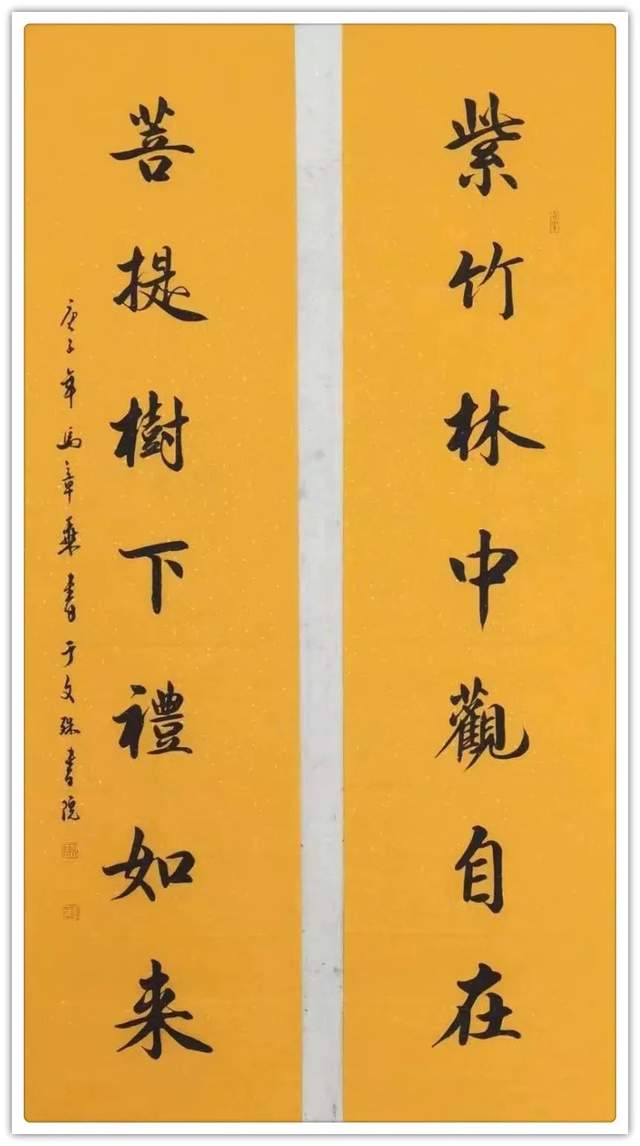 紫竹林中觀自在
菩提樹下禮如来
庚子年馬章乘書于文殊書院